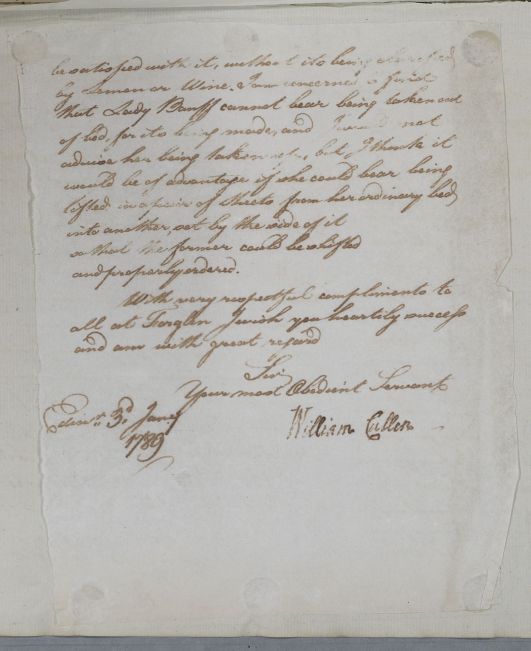 be satisfied with it, without its being
by Lemon or Wine. I am concerned to find
that Lady Banff cannot bear being taken out
of bed, for its being made, and I would not
advise her being taken out, but I think it
would be of advantage if she could bear being
lifted in a pair of sheets from her ordinary bed,
into another set by the side of it
so that the former could be shifted
and properly ordered.
With very respectful compliments to
all at Forglen I wish you heartily success
and am with great regard
Sir
Your most Obedient Servant
William Cullen
Edinr. 3d Jany
1789